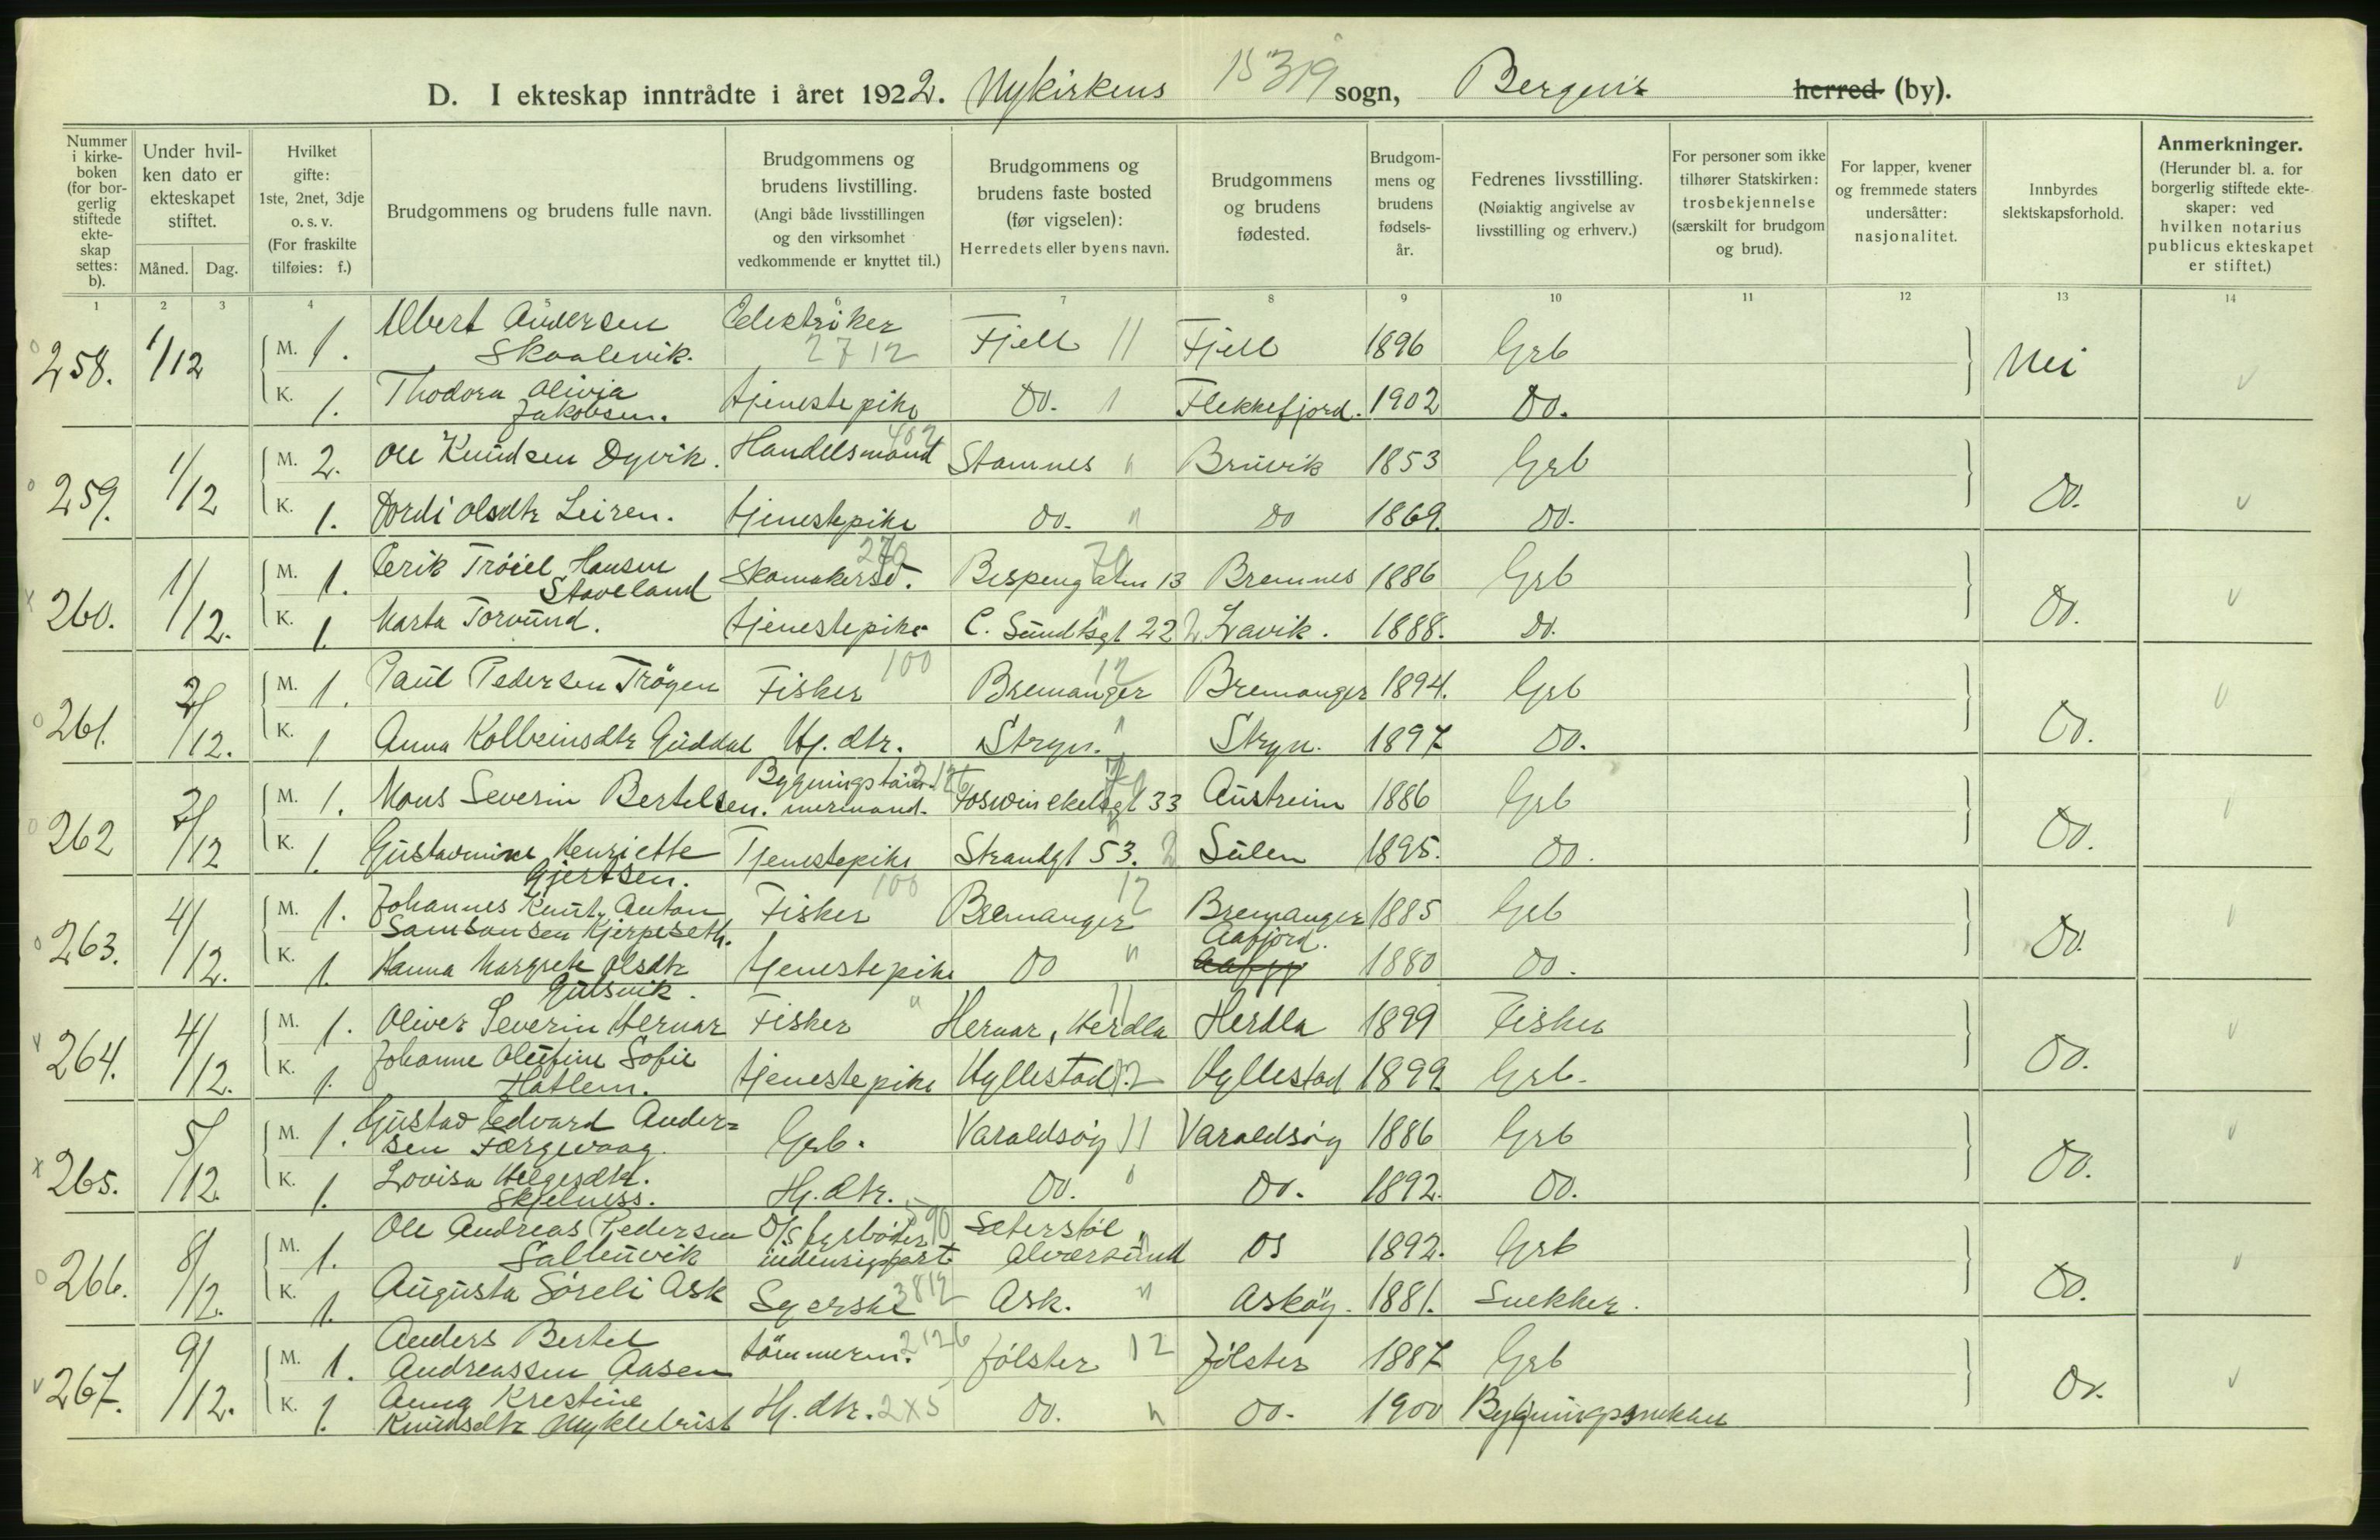 15319
D. I ekteskap inntrådte i året 1922. Nykirkens sogn, Bergens herred (by).
Nummer i kirke-boken (for bor-gerlig stiftede ekte-skap settes: b).
Under hvil-ken dato er ekteskapet stiftet.
Måned. Dag.
Hvilket gifte: 1ste, 2net, 3dje o. s. v. (For fraskilte tilføies: f.)
Brudgommens og brudens fulle navn.
Brudgommens og brudens livstilling. (Angi både livsstillingen og den virksomhet vedkommende er knyttet til.)
Brudgommens og brudens faste bosted (før vigselen): Herredets eller byens navn.
Brudgommens og brudens fødested.
Brudgom-mens og brudens fødsels-år.
Fedrenes livsstilling. (Nøiaktig angivelse av livsstilling og erhverv.)
For personer som ikke tilhører Statskirken: trosbekjennelse (særskilt for brudgom og brud).
For lapper, kvener og fremmede staters undersåtter: nasjonalitet.
Innbyrdes slektskapsforhold.
Anmerkninger. (Herunder bl. a. for borgerlig stiftede ekte-skaper: ved hvilken notarius publicus ekteskapet er stiftet.)
1 2 3 4 5 7 8 9 10 11 12 13 14
258. 1/12 M. 1. Albert Andersen Skaalevik. Elektriker 2712 Fjell 11 Fjell 1896 Grb Nei
K. 1. Thodora Olivia Jakobsen. tjenestepike Do. Flekkefjord. 1902 Do.
259. 1/12 M. 2. Ole Knudsen Dyvik. Handelsmand Stamnes " Bruvik 1853 Grb Do.
K. 1. Dordi Olsdtr Leiren. tjenestepike Do. " Do 1869. Do.
260. 1/12. M. 1. Erik Tröiel Hansen Staveland Skomakersv. Bispengaten 13 Bremnes 1886 Grb Do.
K. 1. Marta Torvund. tjenestepike C. Sundtsgt 22 Lavik. 1888. Do.
261. 2/12. M. 1. Paul Pedersen Trögen Fisker 100 Bremanger 12 Bremanger 1894. Grb Do.
K. 1 Anna Kolbeinsdtr Guddal Hj. dtr. Stryn. " Stryn. 1897 Do.
262 2/12 M. 1. Mons Severin Bertelsen. Bygningstöm-mermand. Foswinckelsgt 33 Austreim 1886 Grb Do.
K. 1. Gustavmine Henriette Gjertsen. Tjenestepike Strandgt 53. 2 Sulen 1895. Do.
263. 4/12. M. 1. Johannes Knut Anton Samsonsen Kjerpeseth. Fisker 100 Bremanger 12 Bremanger 1885 Grb Do.
K. 1. Hanna Margrete Olsdtr Gulsvik. tjenestepike Do " Aafjord. 1880 Do.
264. 4/12. M. 1. Oliver Severin Hernar Fisker " Hernar, Herdla 11 Herdla 1899 Fisker Do.
K. 1. Johanne Olufine Sofie Hatlem. tjenestepike Hyllestad 12 Hyllestad 1899 Grb.
265. 5/12 M. 1. Gustav Edvard Ander=sen Færgevaag. Grb. Varaldsøy 11 Varaldsøy 1886 Grb Do.
K. 1. Lovisa Helgesdtr. Skjelness. Hj. dtr. Do. " Do. 1892. Do.
266. 8/12. M. 1. Ole Andreas Pedersen D/S fyrbøter Alversund Os 1892. Grb Do.
K. 1. Augusta Söreli Ask Syerske 3812 Ask. " Askøy. 1881. Snekker.
267. 9/12. M. 1. Anders Bertel Andreassen Aasen tömmerm. 2126 Jölster 12 Jölster 1887 Grb Do.
K. 1. Anna Krestine Knudsdtr Myklebust Hj. dtr. 2x5 Do. " Do. 1900 Bygningssnekker